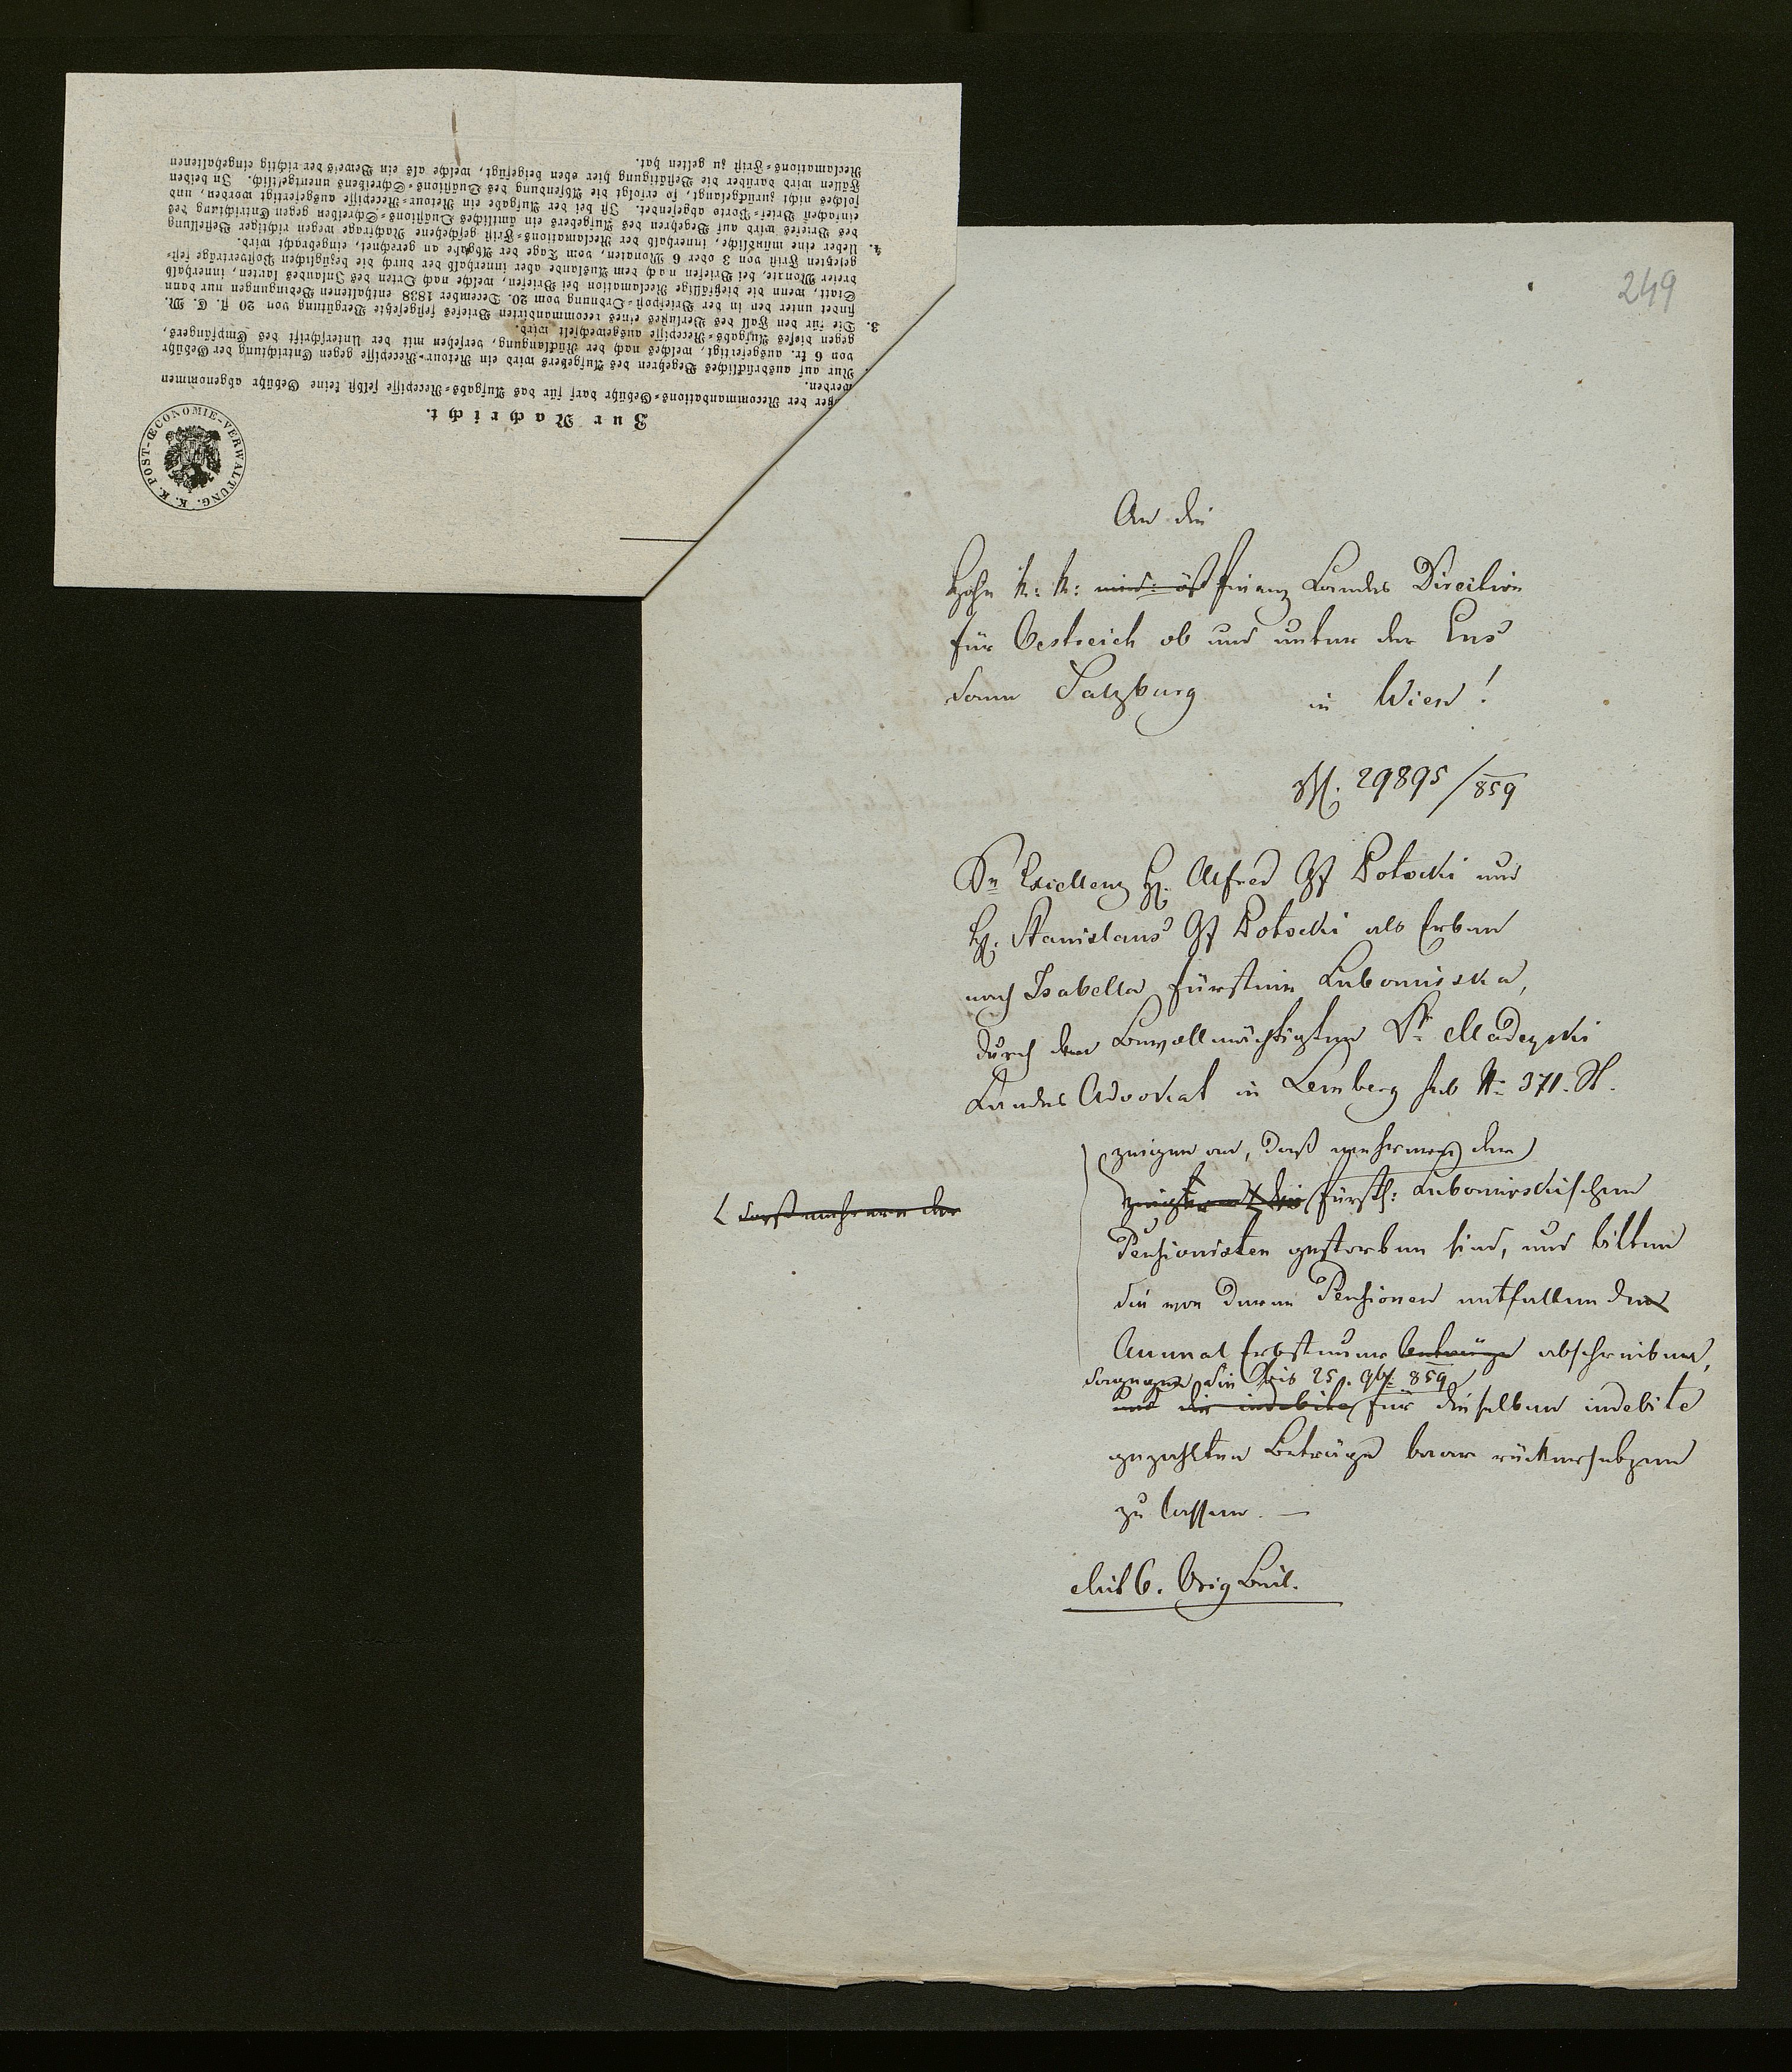 Zur Nachricht.
der Recommandations-Gebühr darf für das Aufgabs-Recepisse selbst keine Gebühr abgenommen
werden.
Nur auf ausdrückliches Begehren des Aufgebers wird ein Retour-Recepisse gegen Entrichtung der Gebühr
von 6 kr. ausgefertigt, welches nach der Rücklangung, versehen mit der Unterschrift des Empfängers,
gegen dieses Aufgabs-Recepisse ausgewechselt wird.
3. Die für den Fall des Verlustes eines recommandirten Briefes festgesetzte Vergütung von 20 fl. C. M.
findet unter den in der Briefpost-Ordnung vom 20. December 1838 enthaltenen Bedingungen nur dann
Statt, wenn die dießfällige Reclamation bei Briefen, welche nach Orten des Inlandes lauten, innerhalb
dreier Monate, bei Briefen nach dem Auslande aber innerhalb der durch die bezüglichen Postverträge fest-
gesetzten Frist von 3 oder 6 Monaten, vom Tage der Abgabe an gerechnet, eingebracht wird.
4. Ueber eine mündliche, innerhalb der Reclamations-Frist geschehene Nachfrage wegen richtiger Bestellung
des Briefes wird auf Begehren des Aufgebers ein ämtliches Quästions-Schreiben gegen Entrichtung des
einfachen Brief-Porto abgesendet. Ist bei der Aufgabe ein Retour-Recepisse ausgefertigt worden, und
solches nicht zurückgelangt, so erfolgt die Absendung des Quästions-Schreibens unentgeltlich. In beiden
Fällen wird darüber die Bestätigung hier oben beigefügt, welche als ein Beweis der richtig eingehaltenen
Reclamations-Frist zu gelten hat.
K. K. POST-ŒCONOMIE-VERWALTUNG.
249
An die
Hohe k: k: nied: öst Finanz Landes Direction
für Oestreich ob und unter der Ens
dann Salzburg in Wien!
29895/859
Se Excellenz H. Alfred Gf Potocki und
H. Stanislaus Gf Potocki als Erben
nach Isabella Fürstinn Lubomirska,
durch den Bevollmächtigten Dr Madeyski
Landes Advokat in Lemberg sub N: 371. St.
zeigen an, daß mehrere der
daß mehrere der
fürstl: Lubomirskischen
Pensionisten gestorben sind, und bitten
die von deren Pensionen entfallenden
Annual Erbsteuer Beträge abschreiben,
dagegen die bis 25. 9br 859
und die indebite für dieselben indebite
gezahlten Beträge baar rückersetzen
zu lassen. —
Mit 6. Orig Beil.